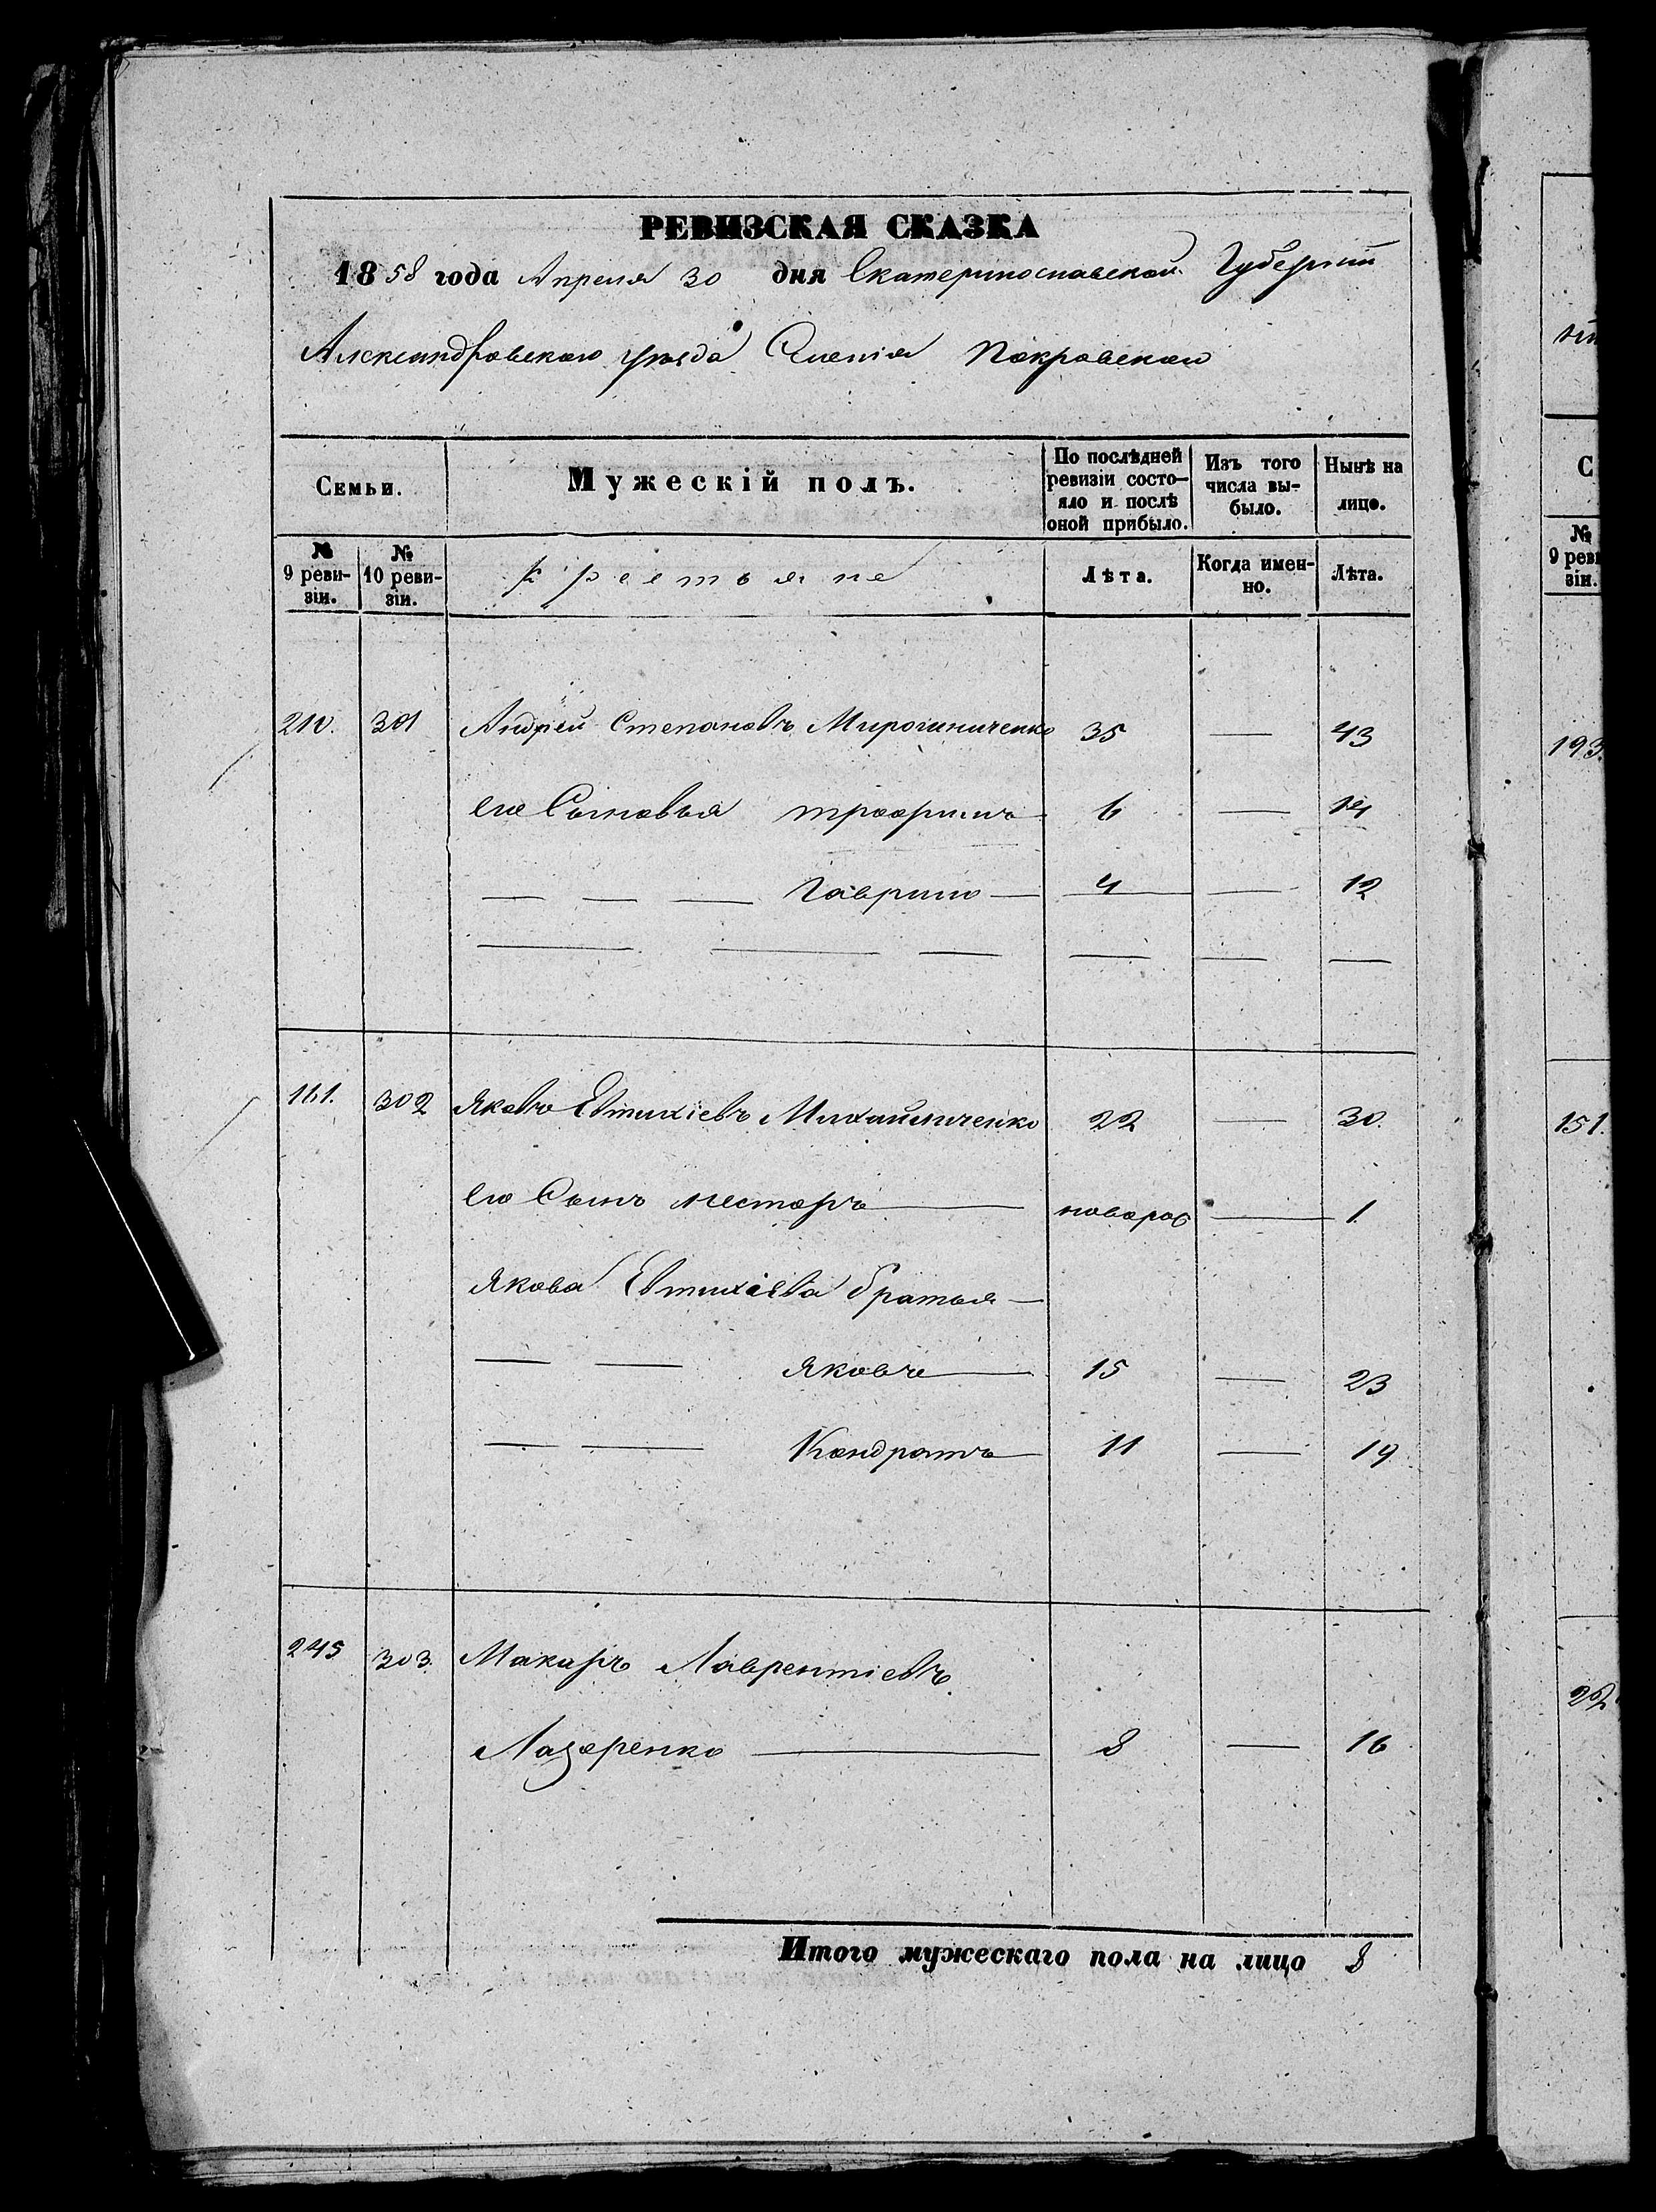 РЕВИЗСКАЯ СКАЗКА
1858 года Апреля 30 дня Екатеринославской Губерніи
Александровскаго уѣзда Селенія Покровскаго
Семьи. Мужескій полъ. По послѣдней ревизіи состояло и послѣ оной прибыло. Изъ того числа выбыло. Нынѣ на лицо.
№ 9 ревизіи. № 10 ревизіи. Крестьяне Лѣта. Когда именно. Лѣта.
210. 301 Андрей Степановъ Мирошниченко 35 — 43
его Сыновья трофимъ 6 — 14
— — — Гаврило — 4 — 12
161. 302 Яковъ Евтихіевъ Михайличенко 22 — 30.
его Сынъ нестеръ — новорож — 1.
Якова Евтихіева братья —
— — Яковъ — 15 — 23
— — Кондратъ — 11 — 19
245 303. Макаръ Лаврентіевъ
Лазаренко — 8 — 16
Итого мужескаго пола на лицо 8
С
№ 9 реви зіи.
193.
151.
22